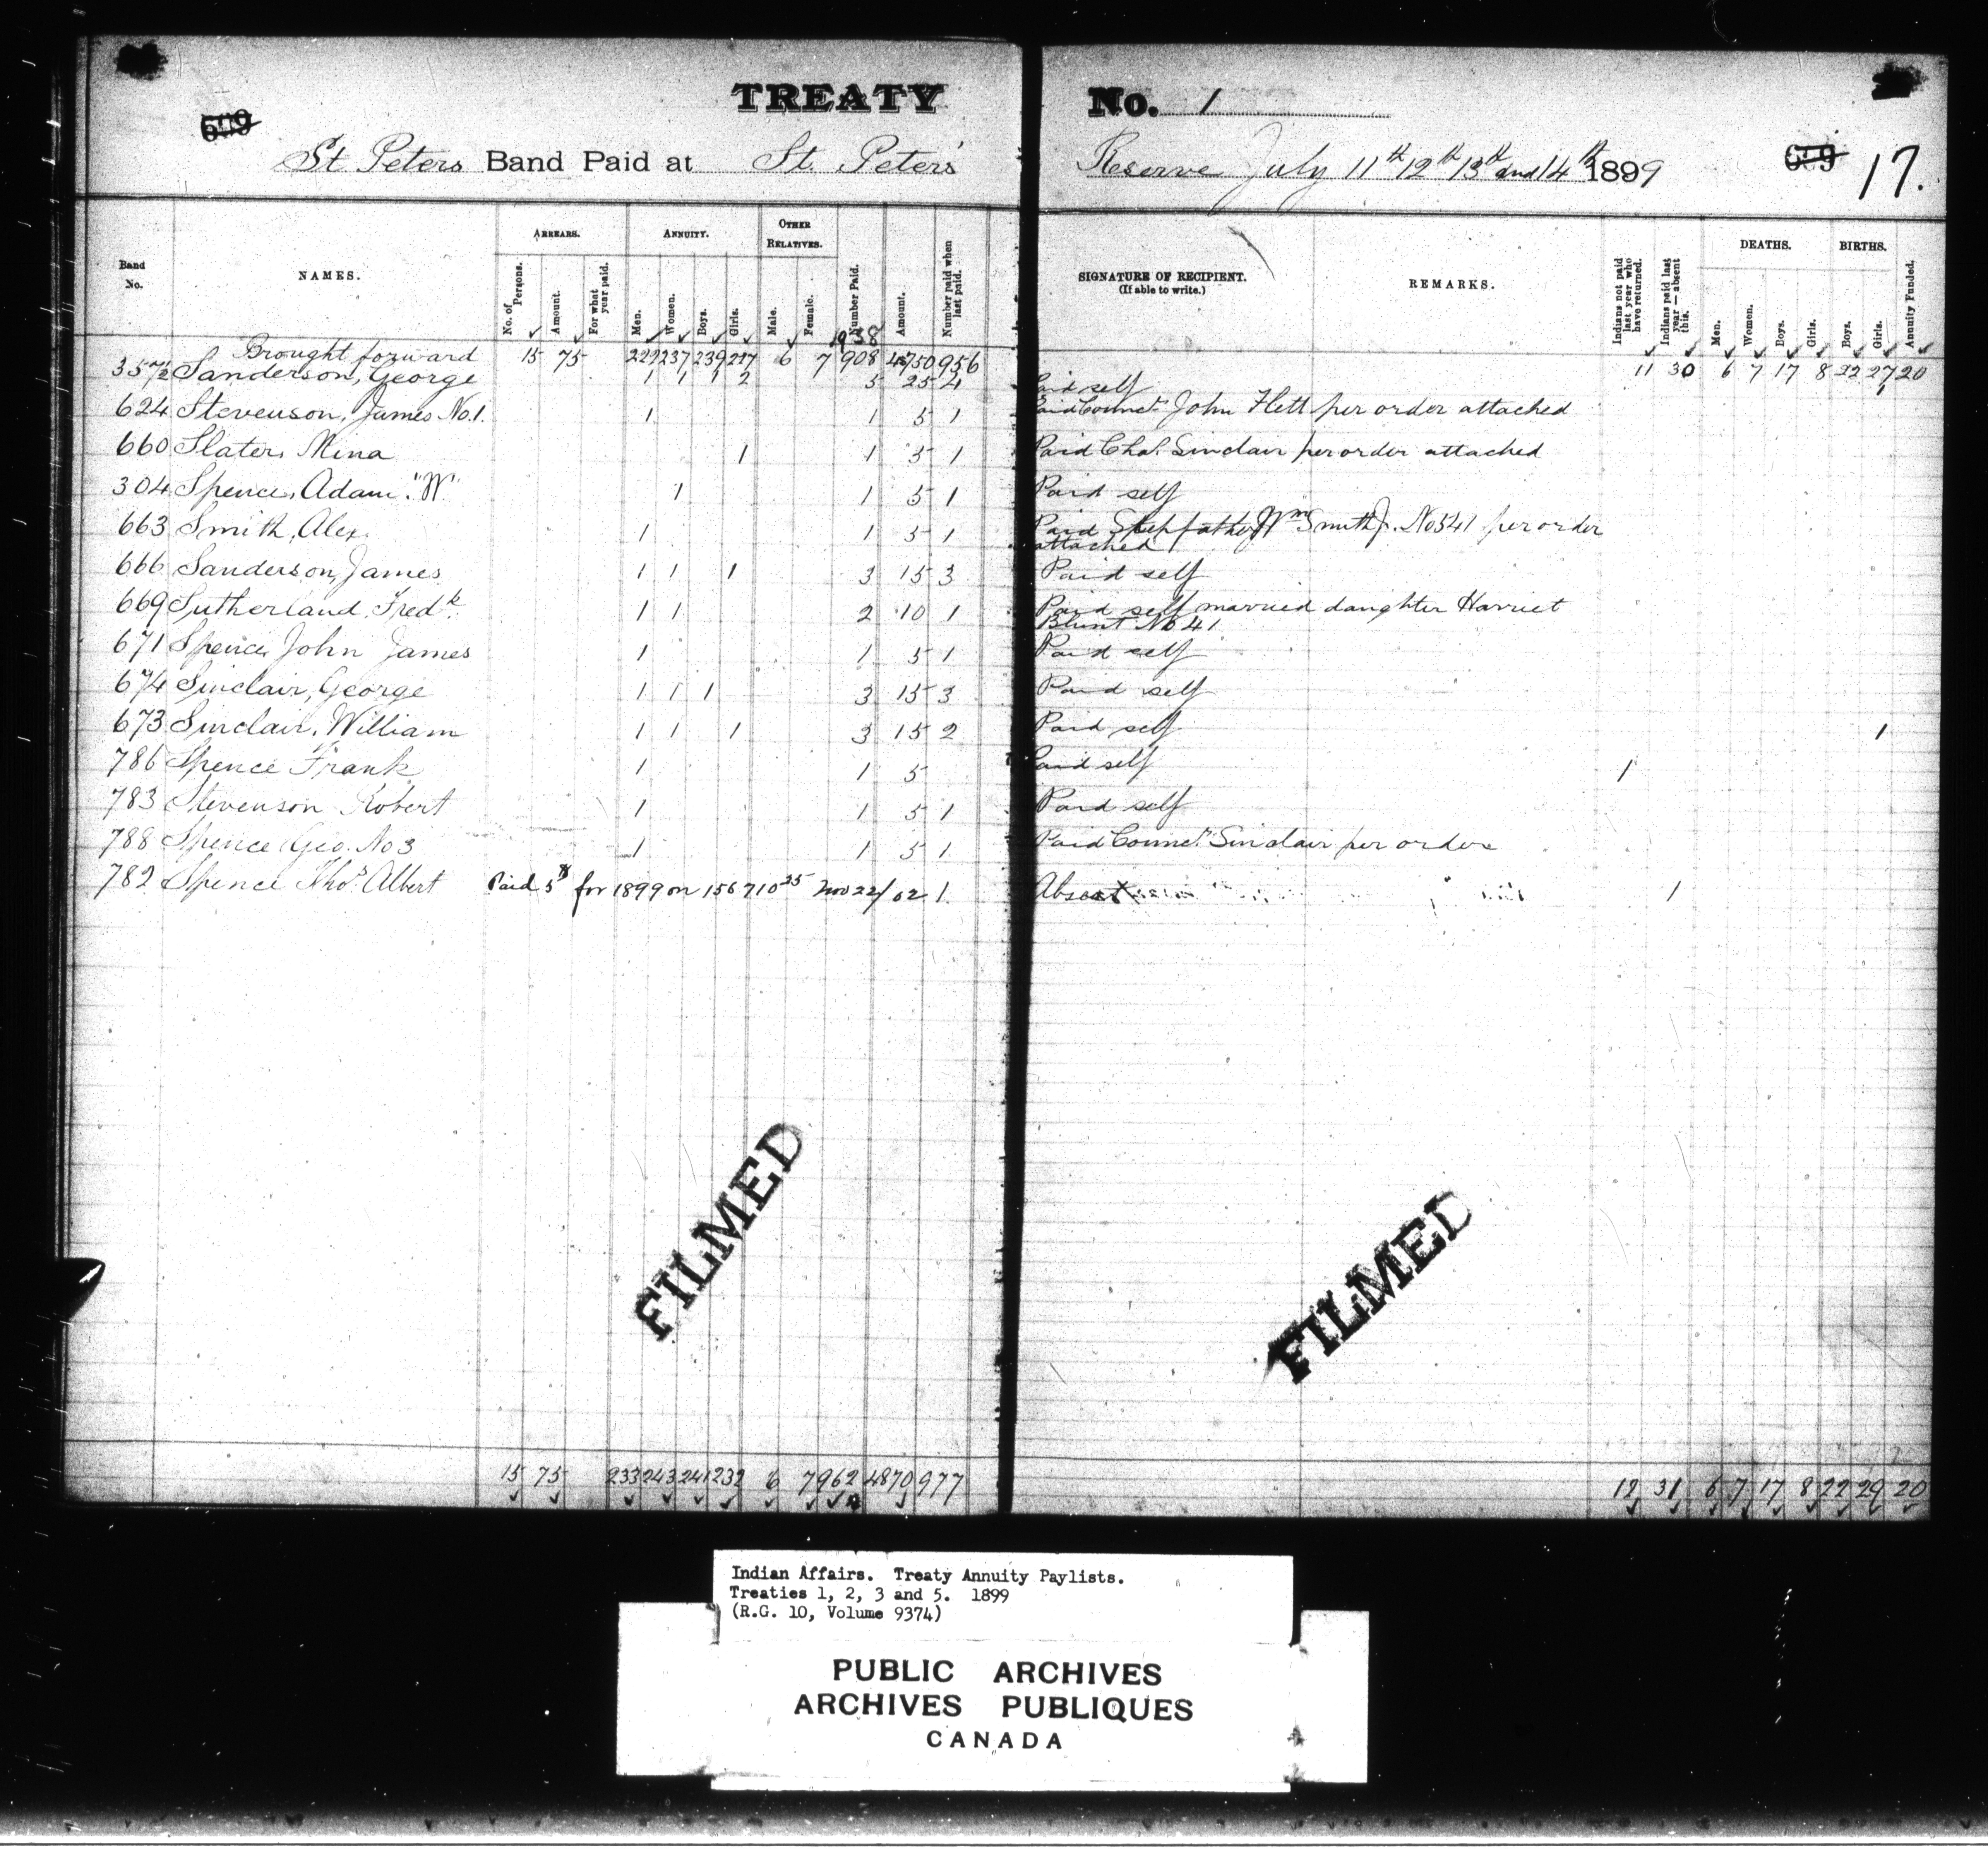 TREATY No. 1
St Peters Band Paid at St. Peter's Reserve July 11th 12th 13th and 14th 1899
17.
Band No.
NAMES.
ARREARS.
No. of Persons.
Amount.
For what year paid.
ANNUITY.
Men.
Women.
Boys.
Girls.
OTHER RELATIVES.
Male.
Female.
Number Paid.
Amount.
Number paid when last paid.
SIGNATURE OF RECIPIENT.
(If able to write.)
REMARKS.
Indians not paid last year who have returned.
Indians paid last year — absent this.
DEATHS.
Men.
Women.
Boys.
Girls.
BIRTHS.
Boys.
Girls.
Annuity Funded.
Brought forward 15 75 237 239 6 7 908 4750 956 11 30 6 7 17 8 22 27 20
Sanderson, George 1 1 1 2 5 25 4 Paid self 1
624 Stevenson, James No. 1. 1 1 5 1 Paid Councr John Flett per order attached
660 Slater, Mina 1 1 5 1 Paid Chas. Sinclair per order attached
304 Spence, Adam "W" 1 1 5 1 Paid self
663 Smith, Alex. 1 1 5 1 Paid Stepfather Wm Smith Jr. No 541 per order
attached
666 Sanderson, James 1 1 1 3 15 3 Paid self
669 Sutherland, Fredk. 1 1 2 10 1 Paid self married daughter Harriet
Blunt No 41
671 Spence, John James 1 1 5 1 Paid self
674 Sinclair, George 1 1 1 3 15 3 Paid self
673 Sinclair, William 1 1 1 3 15 2 Paid self 1
786 Spence Frank 1 1 5 Paid self 1
783 Stevenson Robert 1 1 5 1 Paid self
788 Spence Geo. No 3 1 1 5 1 Paid Councr Sinclair per order
782 Spence Thos. Albert Paid 5 for 1899 on 156710 25 Nov 22/02 1 Absent 1
15 75 233 243 241 232 6 7 962 4870 977 12 31 6 7 17 8 22 29 20
FILMED
FILMED
Indian Affairs. Treaty Annuity Paylists.
Treaties 1, 2, 3 and 5. 1899
(R.G. 10, Volume 9374)
PUBLIC ARCHIVES
ARCHIVES PUBLIQUES
CANADA